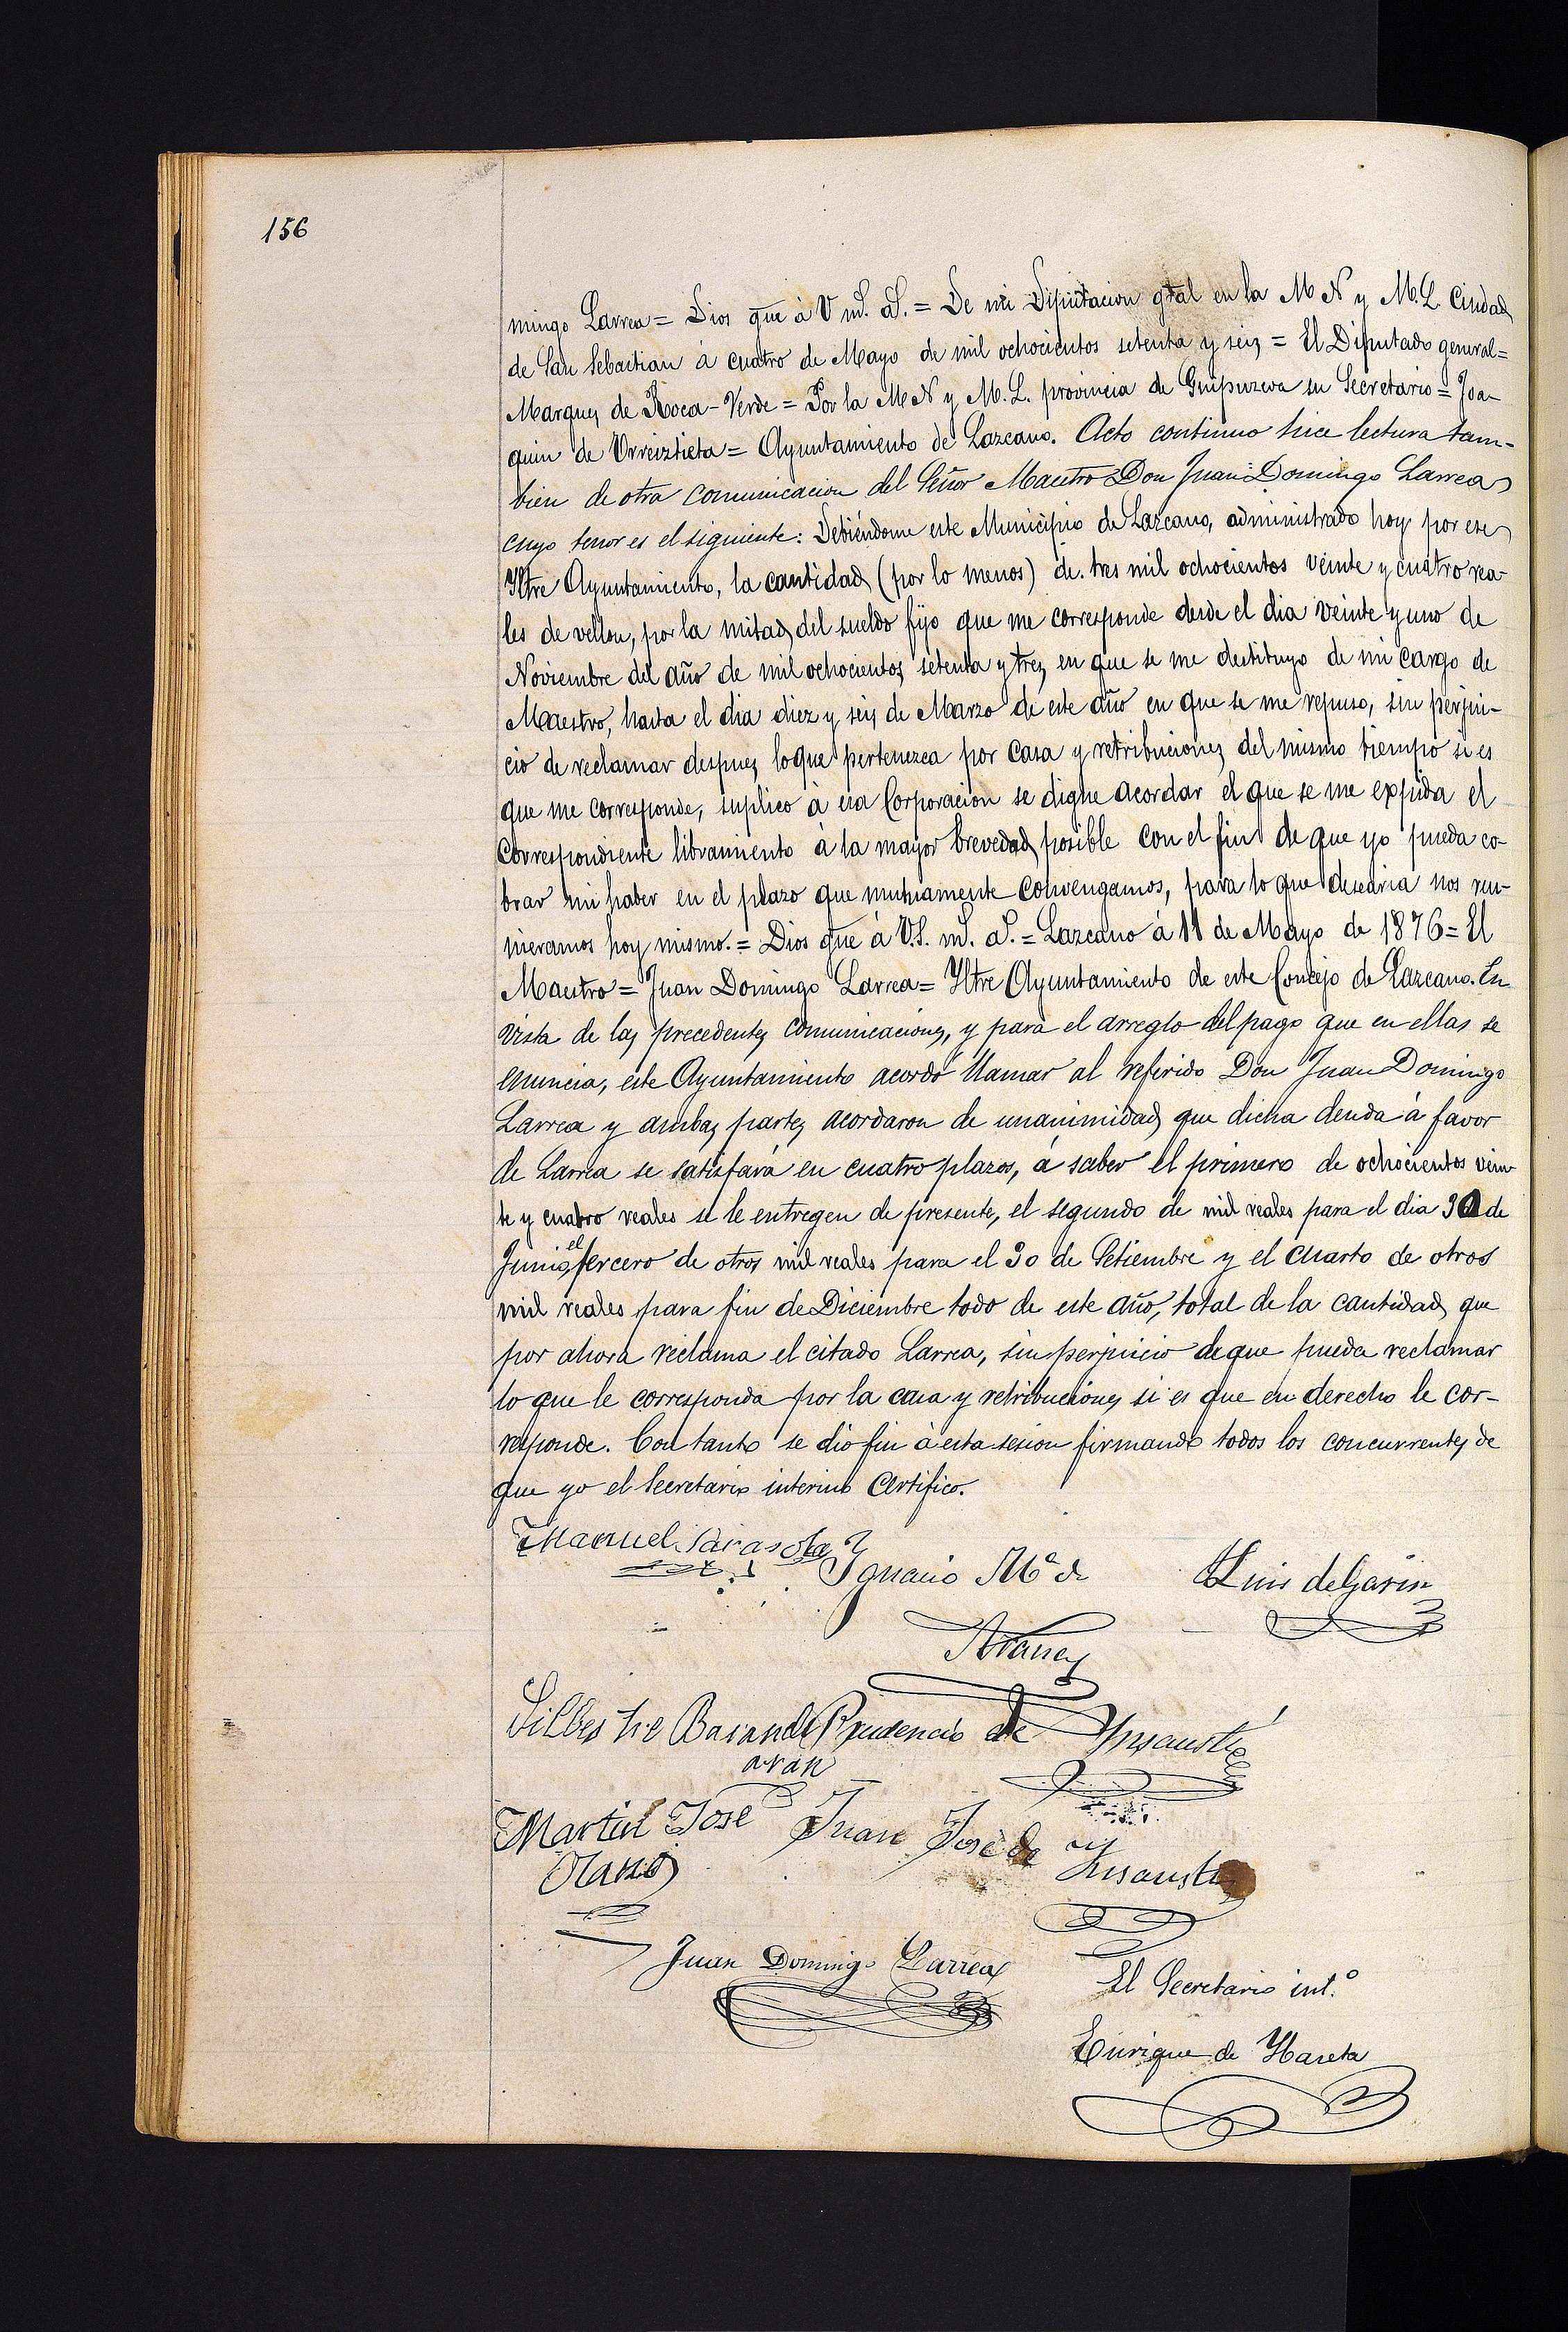 156
mingo Larrea = Dios gue à V ms. as. = De mi Diputacion gral en la M N y M. L. Ciudad
de San Sebastian à cuatro de Mayo de mil ochocientos setenta y seis = El Diputado general =
Marques de Roca-Verde = Por la M N y M. L. provincia de Guipuzcoa su Secretario = Joa-
quin de Urreiztieta = Ayuntamiento de Lazcano. Acto continuo hice lectura tam-
bien de otra comunicacion del Señor Maestro Don Juan Domingo Larrea
cuyo tenor es el siguiente: Debiéndome este Municipio de Lazcano, administrado hoy por ese
Yltre Ayuntamiento, la cantidad (por lo menos) de tres mil ochocientos veinte y cuatro rea-
les de vellon, por la mitad del sueldo fijo que me corresponde desde el dia veinte y uno de
Noviembre del año de mil ochocientos setenta y tres en que se me destituyo de mi cargo de
Maestro, hasta el dia diez y seis de Marzo de este año en que se me repuso, sin perjui-
cio de reclamar despues lo que pertenezca por casa y retribuciones del mismo tiempo si es
que me corresponde, suplico à esa Corporacion se digne acordar el que se me expida el
Correspondiente libramiento à la mayor brevedad posible con el fin de que yo pueda co-
brar mi haber en el plazo que mutuamente convengamos, para lo que desearia nos reu-
nieramos hoy mismo. = Dios gue à V.S. ms. as. = Lazcano à 11 de Mayo de 1876 = El
Maestro = Juan Domingo Larrea = Yltre Ayuntamiento de este Concejo de Lazcano. En
vista de las precedentes comunicaciones, y para el arreglo del pago que en ellas se
enuncia, este Ayuntamiento acordó llamar al referido Don Juan Domingo
Larrea y ambas partes acordaron de unanimidad que dicha deuda à favor
de Larrea se satisfará en cuatro plazos, á saber el primero de ochocientos vein-
te y cuatro reales se le entregen de presente, el segundo de mil reales para el dia 30 de
Junio, el tercero de otros mil reales para el 30 de Setiembre y el cuarto de otros
mil reales para fin de Diciembre todo de este año, total de la cantidad que
por ahora reclama el citado Larrea, sin perjuicio de que pueda reclamar
lo que le corresponda por la casa y retribuciones si es que en derecho le cor-
responde. Con tanto se dio fin à esta sesion firmando todos los concurrentes de
que yo el Secretario interino Certifico.
Manuel Sarasola
Ygnacio Ma de
Luis de Garin
Aranez
Silbestre Barandi
aran
Prudencio de Ynsausti
Martin Jose
Olano
Juan José de Insausti
Juan Domingo Larrea
El Secretario int.o
Enrique de